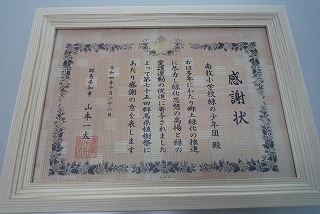 感謝状
南牧小学校緑の少年団 殿
右は多年にわたり郷土緑化の推進
に尽力し緑化思想の高揚と緑の
愛護運動の促進に寄与されました
よって第七十五回群馬県植樹祭に
あたり感謝の意を表します
群馬県知事 山本一太